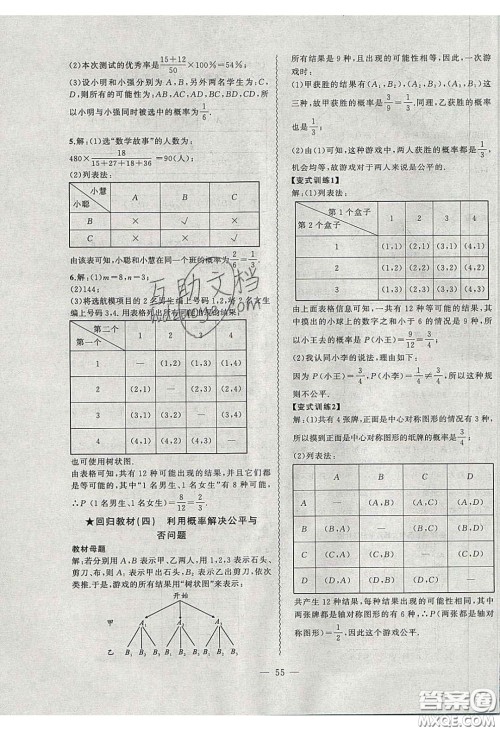 (2)本次测试的优秀率是 (15+12)/50 ×100%=54%;
(3)设小明和小强分别为 A、B,另外两名学生为 C、
D,则所有的可能性为(AB)、(AC)、(AD)、(BC)、(BD)、(CD),
所以小明与小强同时被选中的概率是 1/6.
5.解:(1)选“数学故事”的人数为:
480× 18/(15+27+18+36) =90(人);
(2)列表法:
小慧 A B C
小聪
B × √ ×
C × × √
由该表可知,小聪和小慧在同一个班的概率为 2/6=1/3.
6.解:(1)m=8,n=3;
(2)144;
(3)将选航模项目的2名男生编上号码1,2,将2名女生
编上号码3,4.用表格列出所有可能出现的结果:
第二个 1 2 3 4
第一个
1 (1,2) (1,3) (1,4)
2 (2,1) (2,3) (2,4)
3 (3,1) (3,2) (3,4)
4 (4,1) (4,2) (4,3)
也可使用树状图.
由表格可知,共有12种可能出现的结果,并且它们都
是等可能的,其中“1名男生、1名女生”有8种可
能.∴P(1名男生、1名女生)= 8/12 = 2/3.
★回归教材(四) 利用概率解决公平与
否问题
教材母题
解:若分别用A、B表示甲、乙两人,用1,2,3表示石头、
剪刀、布,则A₁表示甲出石头、B₂表示乙出剪刀,依次
类推.于是,游戏的所有结果用“树状图”来表示:
开始
甲 A₁ A₂ A₃
乙 B₁ B₂ B₃ B₁ B₂ B₃ B₁ B₂ B₃
所有结果是9种,且出现的可能性相等,因此,一次游
戏时:
(1)甲获胜的结果有(A₁,B₂),(A₂,B₃),(A₃,B₁)这
三种,故甲获胜的概率是 3/9=1/3.同理,乙获胜的概率
也是 1/3.
(2)由(1)可知,这种游戏中,两人获胜的概率都为 1/3,
机会均等,故游戏对于两人来说是公平的.
【变式训练1】
解:(1)列表法:
第1个盒子 1 2 3 4
第2个盒子
1 (1,1) (2,1) (3,1) (4,1)
2 (1,2) (2,2) (3,2) (4,2)
3 (1,3) (2,3) (3,3) (4,3)
由上面表格信息可知,一共有12种等可能的结果.其
中摸出的小球上的数字之和小于6的情况有9种,所
以小王去的概率为:P= 9/12 = 3/4;
(2)我认同小李的说法,理由如下:
因为P(小王)= 3/4,P(小李)= 1/4 ≠ 3/4,所以这种规
则不公平.
【变式训练2】
解:(1)共有4张牌,正面是中心对称图形的情况有3种,
所以摸到正面是中心对称图形的纸牌的概率是 3/4;
(2)列表法:
A B C D
A (A,B) (A,C) (A,D)
B (B,A) (B,C) (B,D)
C (C,A) (C,B) (C,D)
D (D,A) (D,B) (D,C)
共产生12种结果,每种结果出现的可能性相同,其中
两张牌都是轴对称图形的有6种,∴P(两张都是轴对
称图形)= 1/2,因此这个游戏公平.
55
互助文档
答案圈
MXQE.COM